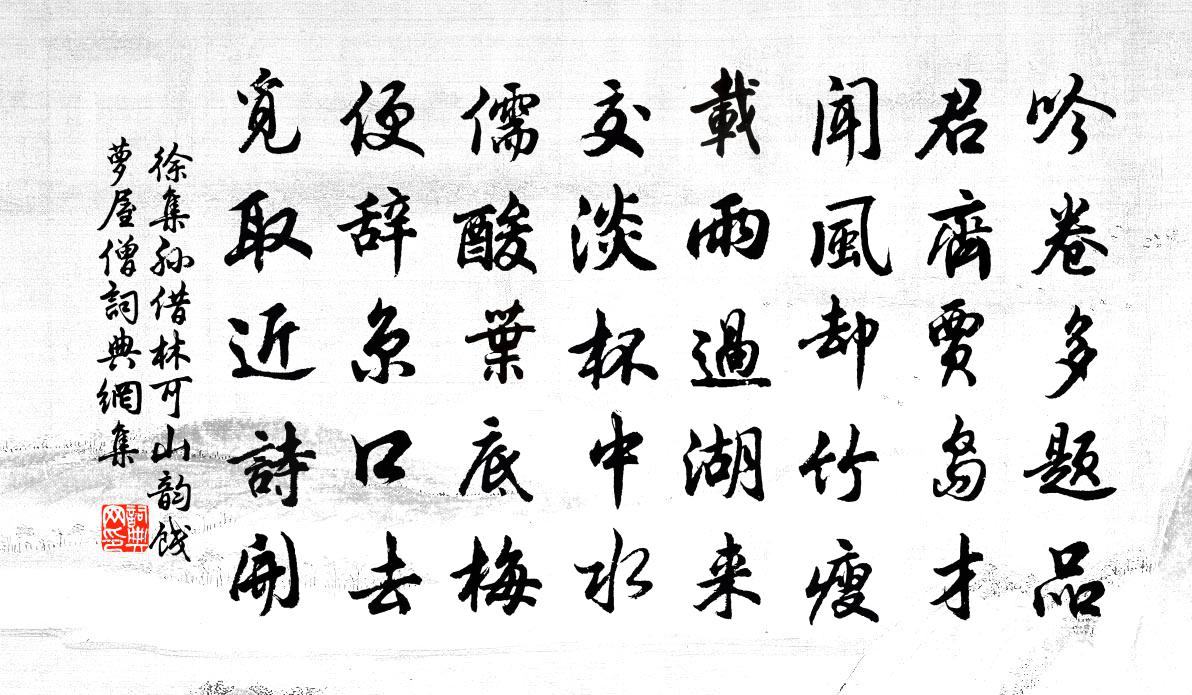 吟卷多题品
君齊贾岛才
闻風却竹瘦
載雨過湖来
交淡杯中水
儒酸葉底梅
便辞京口去
覓取近詩開
徐集孙借林可山韵餞
夢屋僧詞典網集
詞典网印